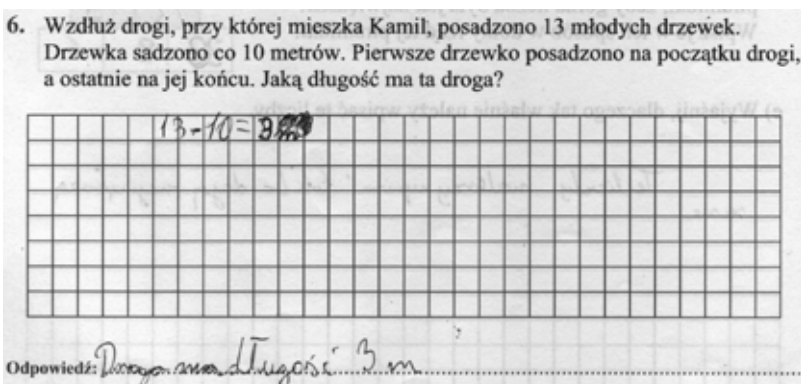 6. Wzdłuż drogi, przy której mieszka Kamil, posadzono 13 młodych drzewek.
Drzewka sadzono co 10 metrów. Pierwsze drzewko posadzono na początku drogi,
a ostatnie na jej końcu. Jaką długość ma ta droga?
13-10=3
Odpowiedź: Droga ma długość 3 m